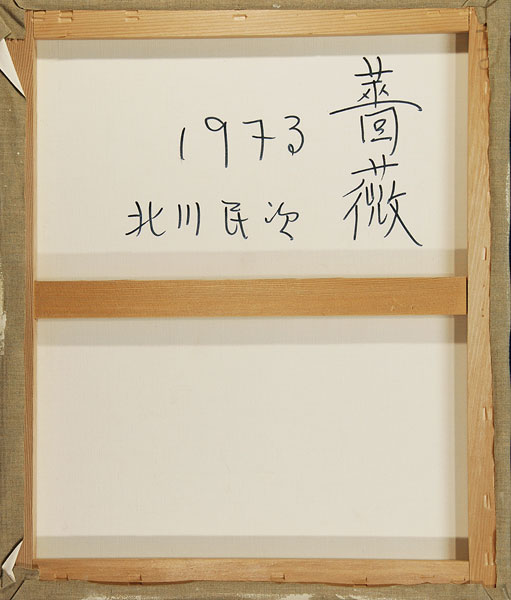 薔薇
1973
北川民次